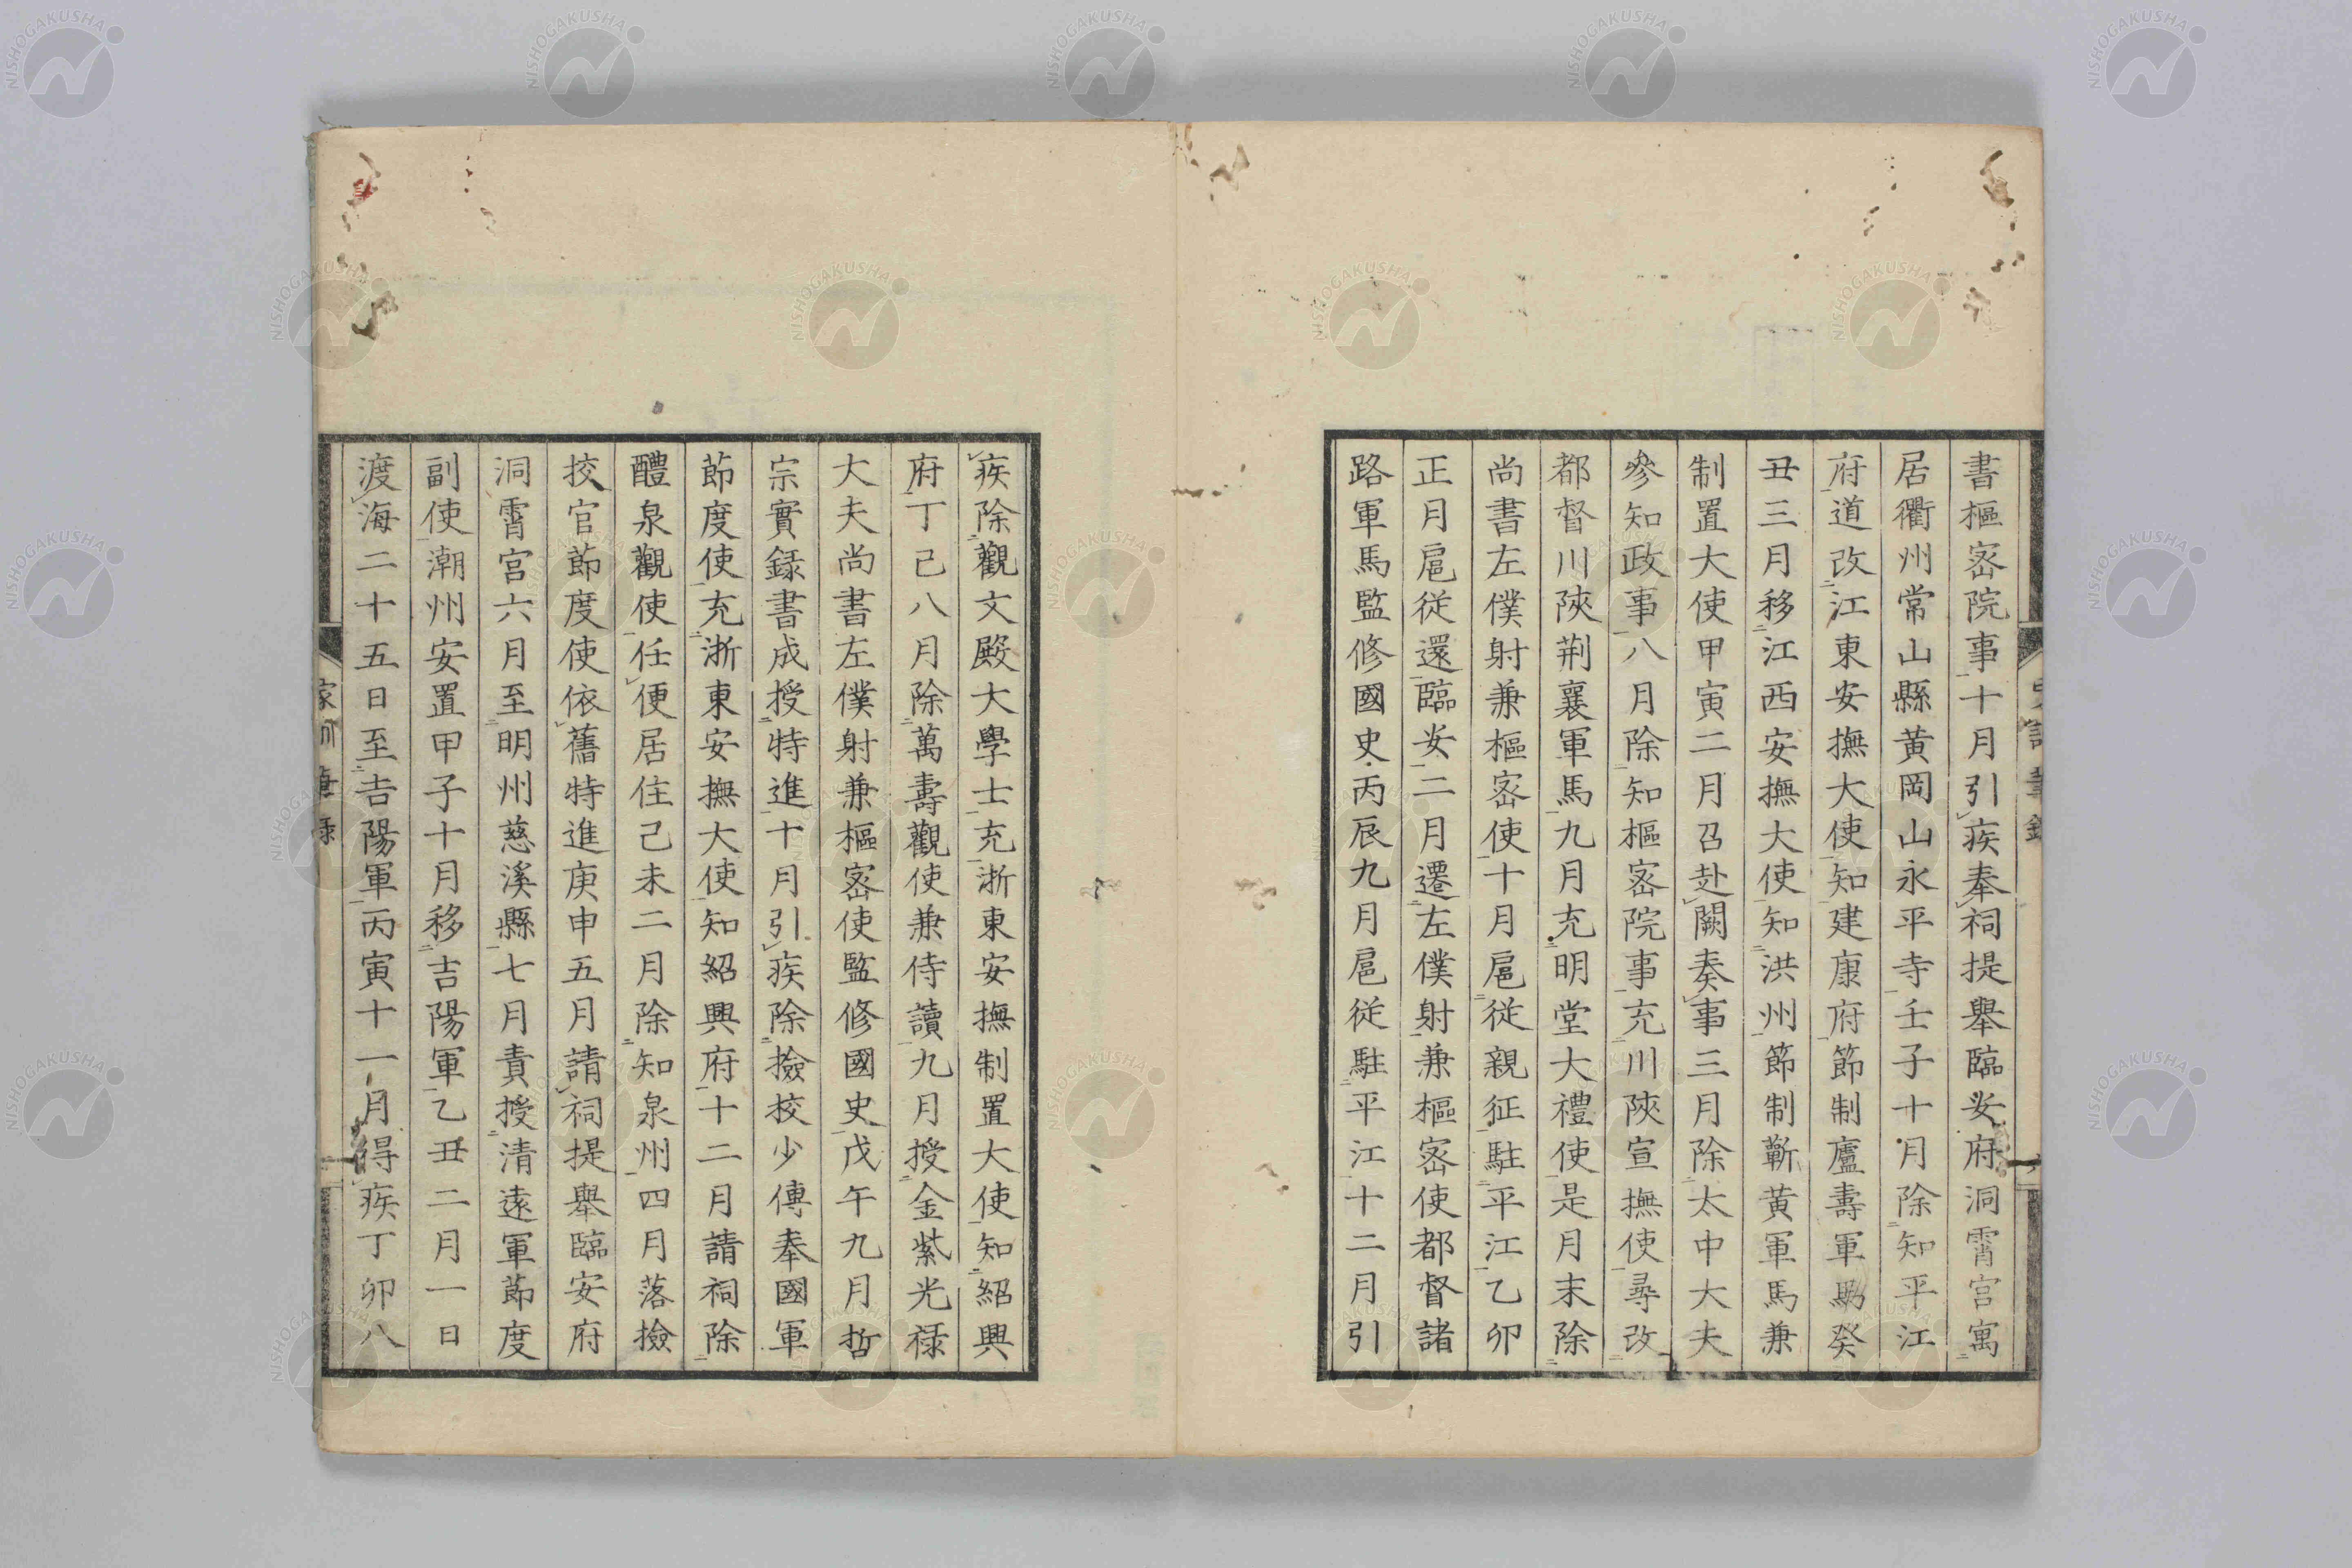 書樞宻院事十月引疾奉祠提舉臨安府洞霄宮寓
居衢州常山縣黄岡山永平寺壬子十月除知平江
府道改江東安撫大使知建康府節制廬壽軍馬癸
丑三月移江西安撫大使知洪州節制蘄黄軍馬兼
制置大使甲寅二月召赴闕奏事三月除太中大夫
參知政事八月除知樞宻院事充川陝宣撫使尋改
都督川陝荆襄軍馬九月充明堂大禮使是月末除
尚書左僕射兼樞宻使十月扈従親征駐平江乙卯
正月扈従還臨安二月遷左僕射兼樞宻使都督諸
路軍馬監修國史丙辰九月扈従駐平江十二月引
疾除觀文殿大學士充浙東安撫制置大使知紹興
府丁己八月除萬壽觀使兼侍讀九月授金紫光禄
大夫尚書左僕射兼樞宻使監修國史戊午九月哲
宗實録書成授特進十月引疾除撿挍少傅奉國軍
節度使充浙東安撫大使知紹興府十二月請祠除
醴泉觀使任便居住己未二月除知泉州四月落撿
挍官節度使依舊特進庚申五月請祠提舉臨安府
洞霄宮六月至明州慈溪縣七月責授清遠軍節度
副使潮州安置甲子十月移吉陽軍乙丑二月一日
渡海二十五日至吉陽軍丙寅十一月得疾丁卯八